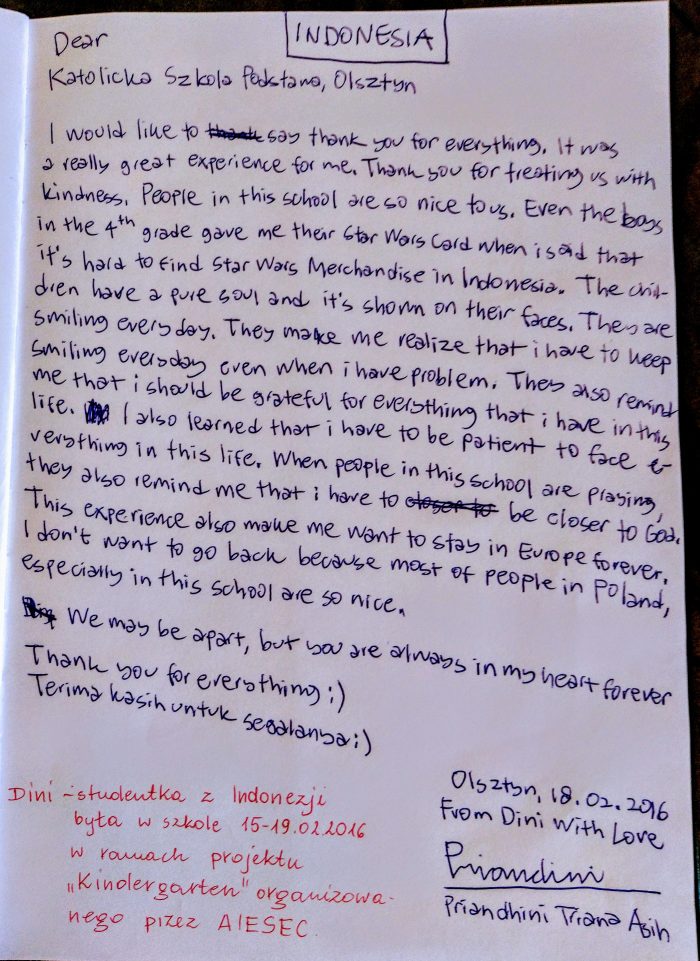 INDONESIA
Dear
Katolicka Szkola Podstawa, Olsztyn
I would like to thank say thank you for everything. It was
a really great experience for me. Thank you for treating us with
kindness. People in this school are so nice to us. Even the boys
in the 4th grade gave me their Star Wars Card when i said that
it's hard to find Star Wars Merchandise in Indonesia. The chil-
dren have a pure soul and it's shown on their faces. They are
smiling everyday. They make me realize that i have to keep
smiling everyday even when i have problem. They also remind
me that i should be grateful for everything that i have in this
life. I also learned that i have to be patient to face e-
verything in this life. When people in this school are praying,
they also remind me that i have to closer to be closer to God.
This experience also make me want to stay in Europe forever.
I don't want to go back because most of people in Poland,
especially in this school are so nice.
We may be apart, but you are always in my heart forever
Thank you for everything :)
Terima kasih untuk segalanya :)
Olsztyn, 18.02.2016
From Dini With Love
Priandini
Priandhini Triana Asih
Dini - studentka z Indonezji
była w szkole 15-19.02.2016
w ramach projektu
„Kindergarten" organizowa-
nego przez AIESEC.